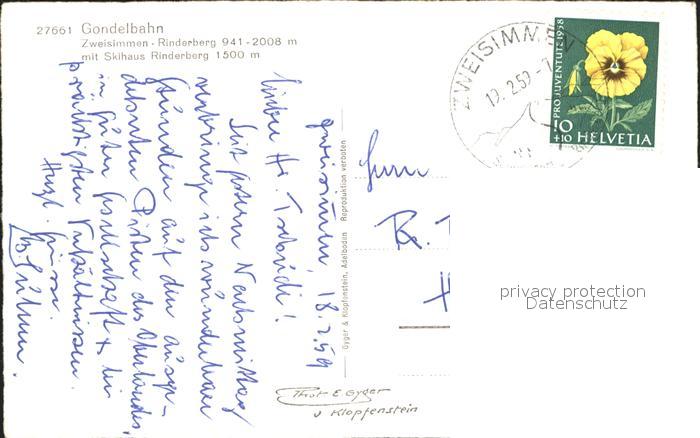 27661 Gondelbahn
Zweisimmen - Rinderberg 941-2008 m
mit Skihaus Rinderberg 1500 m
Zweisimmen, 18.2.59
Lieber Hr. Tschudi!
Seit gestern Nachmittag
verbringe ich wunderbare
Stunden auf den ausge-
dehnten Pisten des Oberlandes,
in guter Gesellschaft & bei
prächtigsten Verhältnissen.
Herzl. Grüsse
Gyger & Klopfenstein, Adelboden Reproduktion verboten
Herrn
R. T
H
Phot E Gyger
u Klopfenstein
ZWEISIMMEN
19.2.59-7
PRO JUVENTUTE 1958
10
+10 HELVETIA
privacy protection
Datenschutz